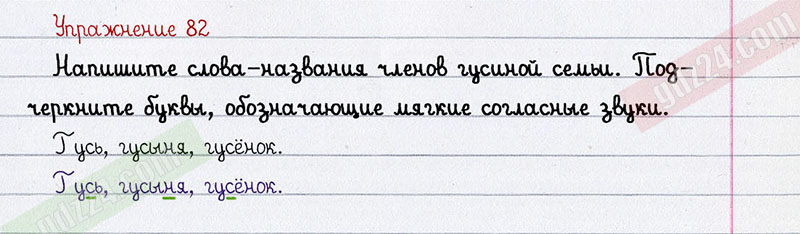 Упражнение 82
Напишите слова-названия членов гусиной семьи. Под-
черкните буквы, обозначающие мягкие согласные звуки.
Гусь, гусыня, гусёнок.
Гусь, гусыня, гусёнок.
gdz24.com
gdz24.com